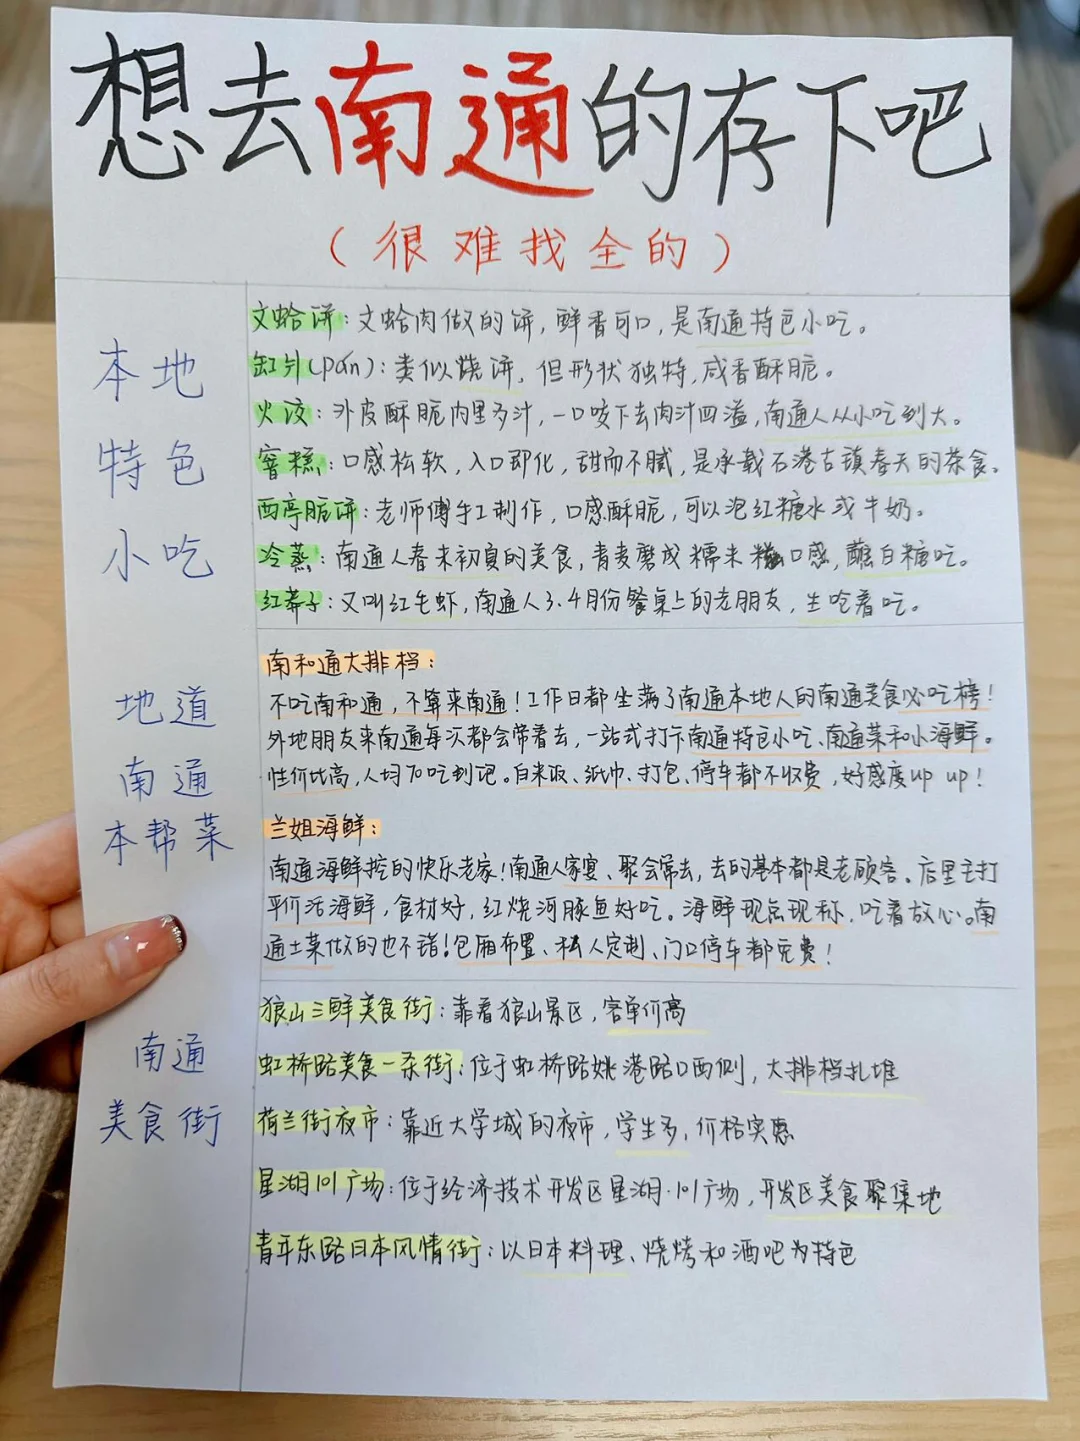 想去南通的存下吧
(很难找全的)
本地
特色
小吃
文蛤饼：文蛤肉做的饼，鲜香可口，是南通特色小吃。
缸爿(pán)：类似烧饼，但形状独特，咸香酥脆。
火饺：外皮酥脆内里多汁，一口咬下去肉汁四溢，南通人从小吃到大。
窨糕：口感松软，入口即化，甜而不腻，是承载石港古镇春天的茶食。
西亭脆饼：老师傅手工制作，口感酥脆，可以泡红糖水或牛奶。
冷蒸：南通人春末初夏的美食，青麦磨成糯米口感，蘸白糖吃。
红莽子：又叫红毛虾，南通人3.4月份餐桌上的老朋友，生呛着吃。
地道
南通
本帮菜
南和通大排档：
不吃南和通，不算来南通！工作日都坐满了南通本地人的南通美食必吃榜！
外地朋友来南通每次都会带着去，一站式打卡南通特色小吃、南通菜和小海鲜。
性价比高，人均70吃到吧。白米饭、纸巾、打包、停车都不收费，好感度up up！
兰姐海鲜：
南通海鲜控的快乐老家！南通人家宴、聚会常去，去的基本都是老顾客。店里主打
平价活海鲜，食材好，红烧河豚鱼好吃。海鲜现点现称，吃着放心。南
通土菜做的也不错！包厢布置、私人定制、门口停车都免费！
南通
美食街
狼山三鲜美食街：靠着狼山景区，客单价高
虹桥路美食一条街：位于虹桥路姚港路口西侧，大排档扎堆
荷兰街夜市：靠近大学城的夜市，学生多，价格实惠
星湖101广场：位于经济技术开发区星湖·101广场，开发区美食聚集地
青年东路日本风情街：以日本料理、烧烤和酒吧为特色